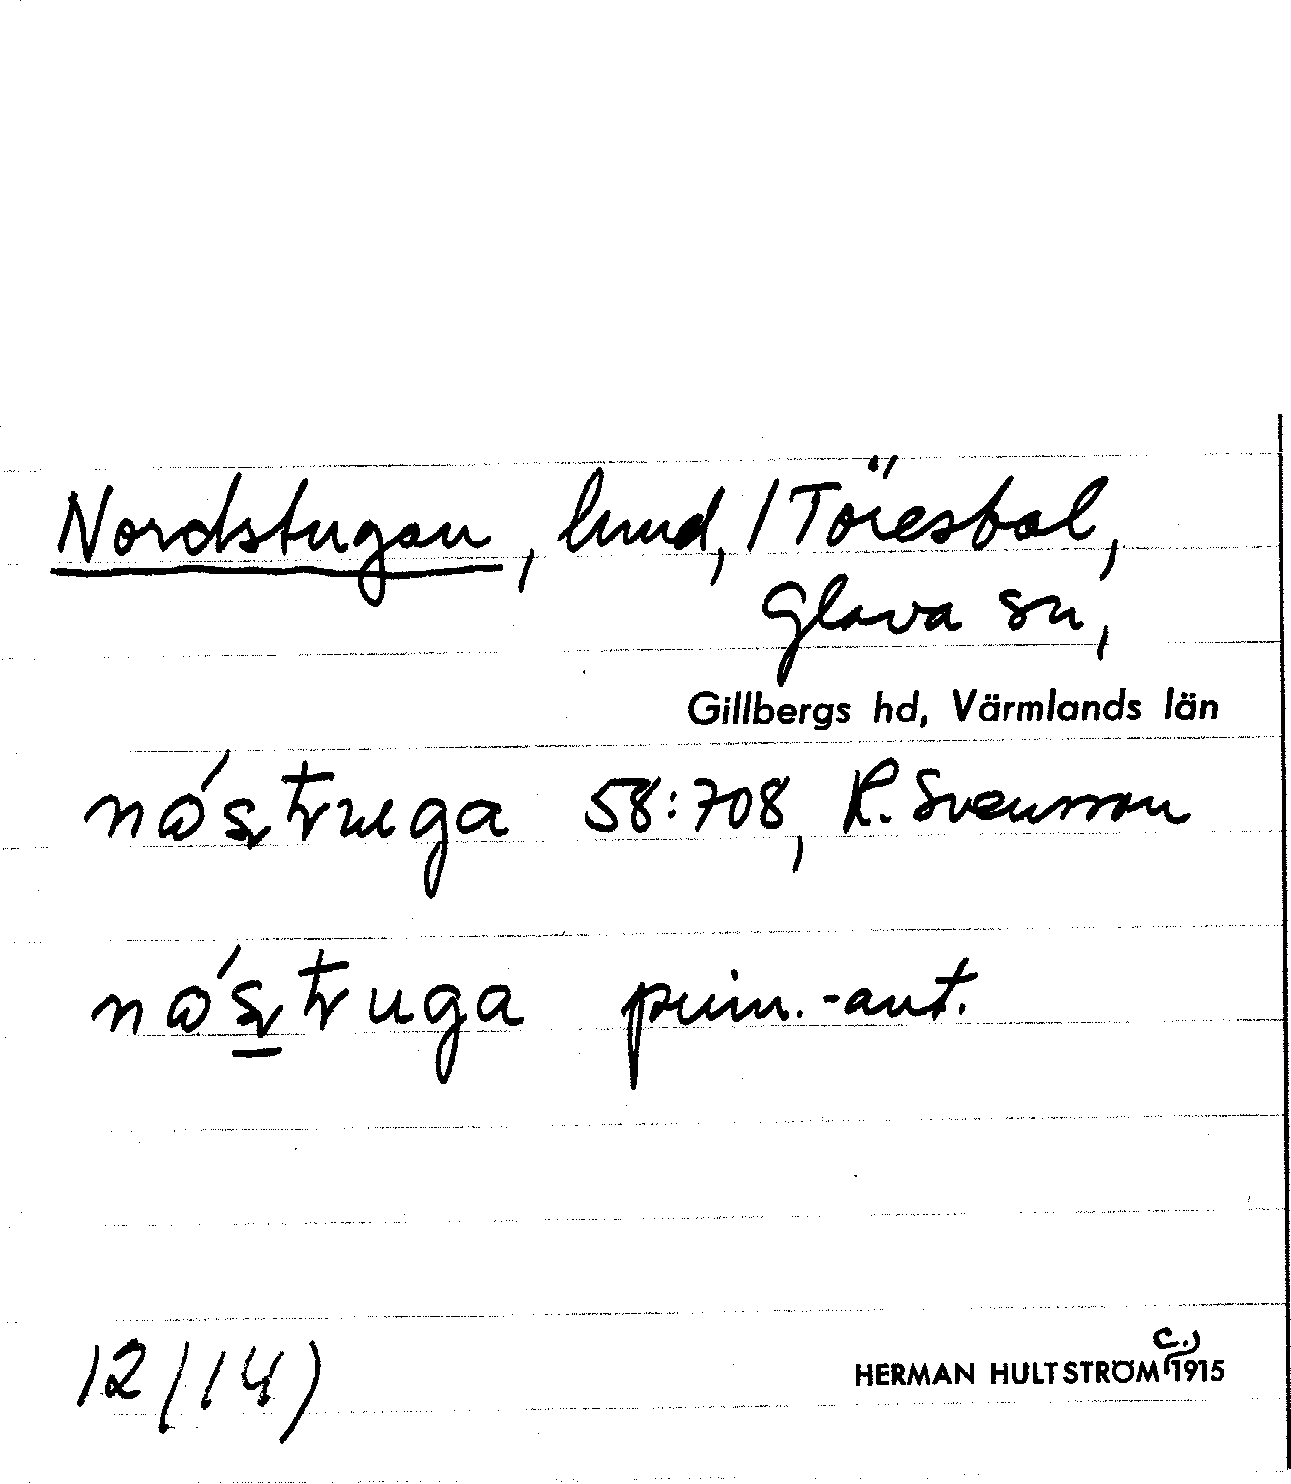 Nordstugan, hmd, / Töresbol,
Glava sn,
Gillbergs hd, Värmlands län
58:708, R. Svensson
prim.-ant.
12 (14)
HERMAN HULTSTRÖM c. 1915